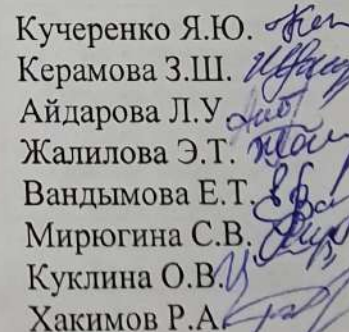 Кучеренко Я.Ю.
Керамова З.Ш.
Айдарова Л.У.
Жалилова Э.Т.
Вандымова Е.Т.
Мирюгина С.В.
Куклина О.В.
Хакимов Р.А.